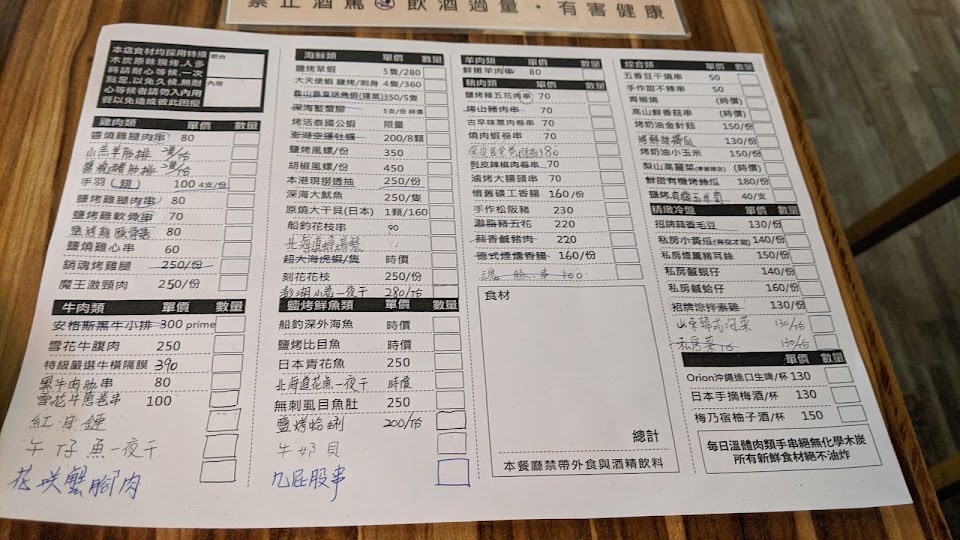 禁止酒駕 飲酒過量,有害健康
本店食材均採用特級
木炭原味現烤,人多
時請耐心等候,一次
點足,以免久候,無耐
心等候者請勿入內用
餐以免造成彼此困擾
內用
雞肉類 單價 數量
醬燒雞腿肉串 80
手羽(翅) 100 4支/份
鹽烤雞腿肉串 80
鹽烤雞軟骨串 70
80
鹽燒雞心串 60
銷魂烤雞腿 250/份
魔王激頸肉 250/份
牛肉類 單價 數量
安格斯黑牛小排 300 prime
雪花牛腹肉 250
特級嚴選牛橫隔膜 390
黑牛肉肋串 80
雪花牛蔥蔥串 100
紅
午仔魚一夜干
花咲蟹腳肉
海鮮類 單價 數量
鹽烤草蝦 5隻/280
大天使蝦 鹽烤/刺身 4隻/360
龜山島直送魚蝦(運氣) 350/5隻
深海藍蟹腳 5支/份 時價
烤活泰國公蝦 限量
澎湖空運牡蠣 200/8顆
鹽烤風螺/份 350
胡椒風螺/份 450
本港現撈透抽 250/份
深海大魷魚 250/隻
原燒大干貝(日本) 1顆/160
船釣花枝串 90
超大海虎蝦/隻 時價
刻花花枝 250/份
澎湖小卷一夜干 280/份
鹽烤鮮魚類 單價 數量
船釣深外海魚 時價
鹽烤比目魚 時價
日本青花魚 250
北海道花魚一夜干 時價
無刺虱目魚肚 250
鹽烤蛤蜊 200/份
牛奶貝
九屁股串
羊肉類 單價 數量
鮮嫩羊肉串 80
豬肉類 單價 數量
鹽烤豬五花肉串 70
烤山豬肉串 70
古早味黑肉卷串 70
燒肉蝦卷串 70
80
剝皮辣椒肉卷串 70
滷烤大腸頭串 70
懷舊礦工香腸 160/份
手作松阪豬 230
瀨脂豬五花 220
蒜香鹹豬肉 220
德式煙燻香腸 160/份
100
食材
總計
本餐廳禁帶外食與酒精飲料
綜合類 單價 數量
五香豆干燒串 50
手作甜不辣串 50
青椒燒 (時價)
高山鮮香菇串 (時價)
烤奶油金針菇 150/份
130/份
烤奶油小玉米 150/份
梨山高麗菜(季節限定) (時價)
鮮甜有機烤絲瓜 180/份
鹽烤有機玉米筍 40/支
精緻冷盤 單價 數量
招牌蒜香毛豆 130/份
私房小黃瓜(有空才做) 140/份
私房煙薰豬耳絲 150/份
私房鹹蜆仔 140/份
私房鹹蛤仔 160/份
招牌涼拌素雞 130/份
山東韓式泡菜 130/份
私房菜 130/份
單價 數量
Orion沖繩進口生啤/杯 130
日本手摘梅酒/杯 130
梅乃宿柚子酒/杯 150
每日溫體肉類手串絕無化學木炭
所有新鮮食材絕不油炸